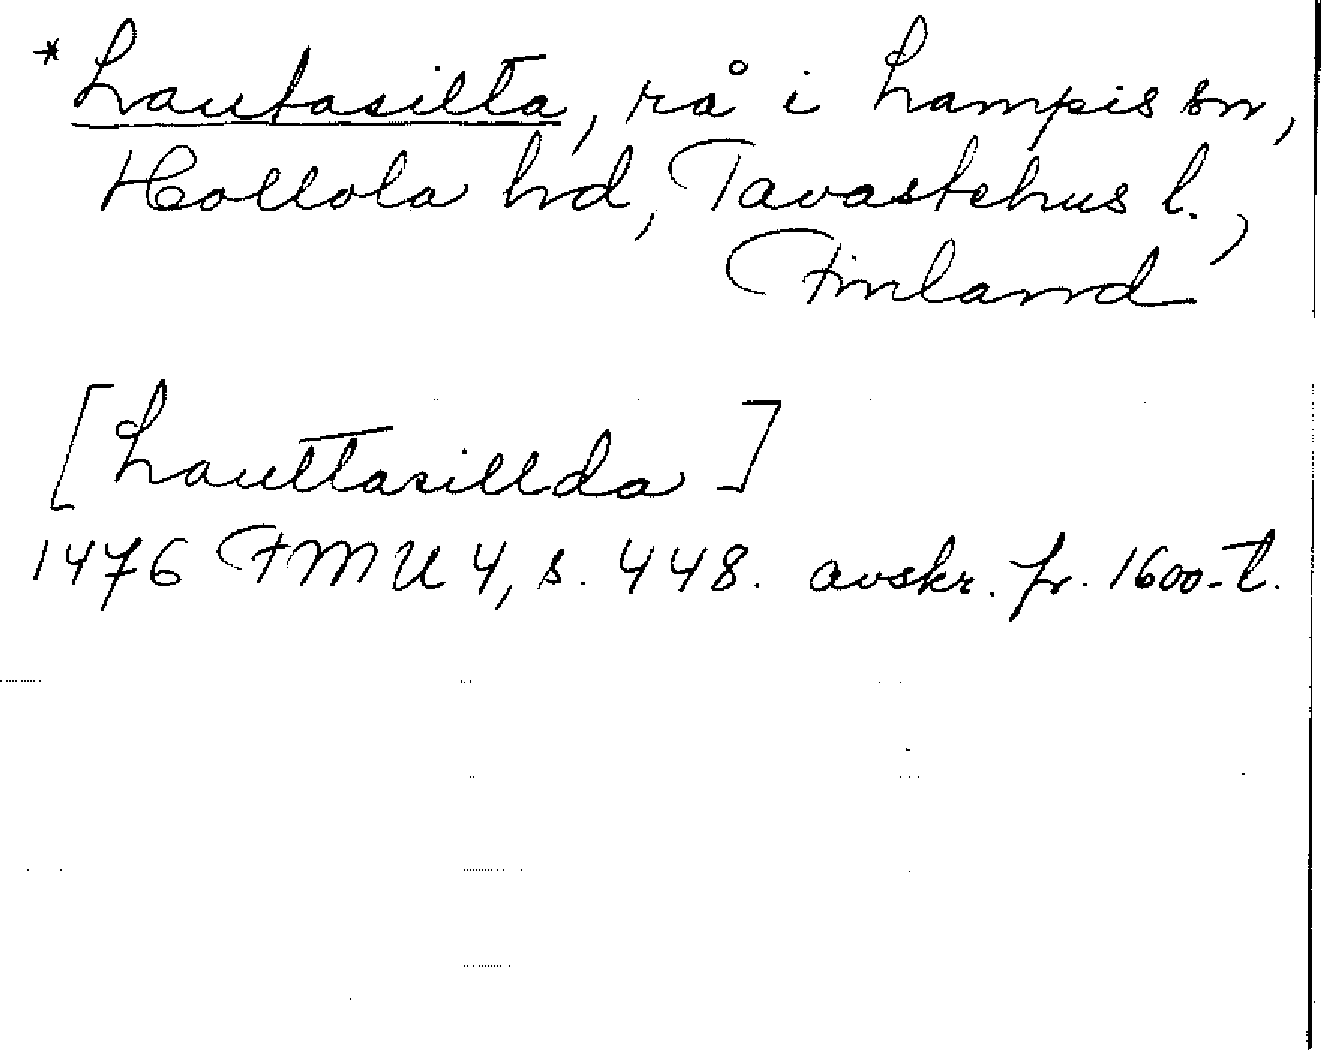 * Lautasilta, rå i Lampis sn,
Hollola hd, Tavastehus l.,
Finland
[Lauttasillda]
1476 FMU 4, s. 448. avskr. fr. 1600-t.